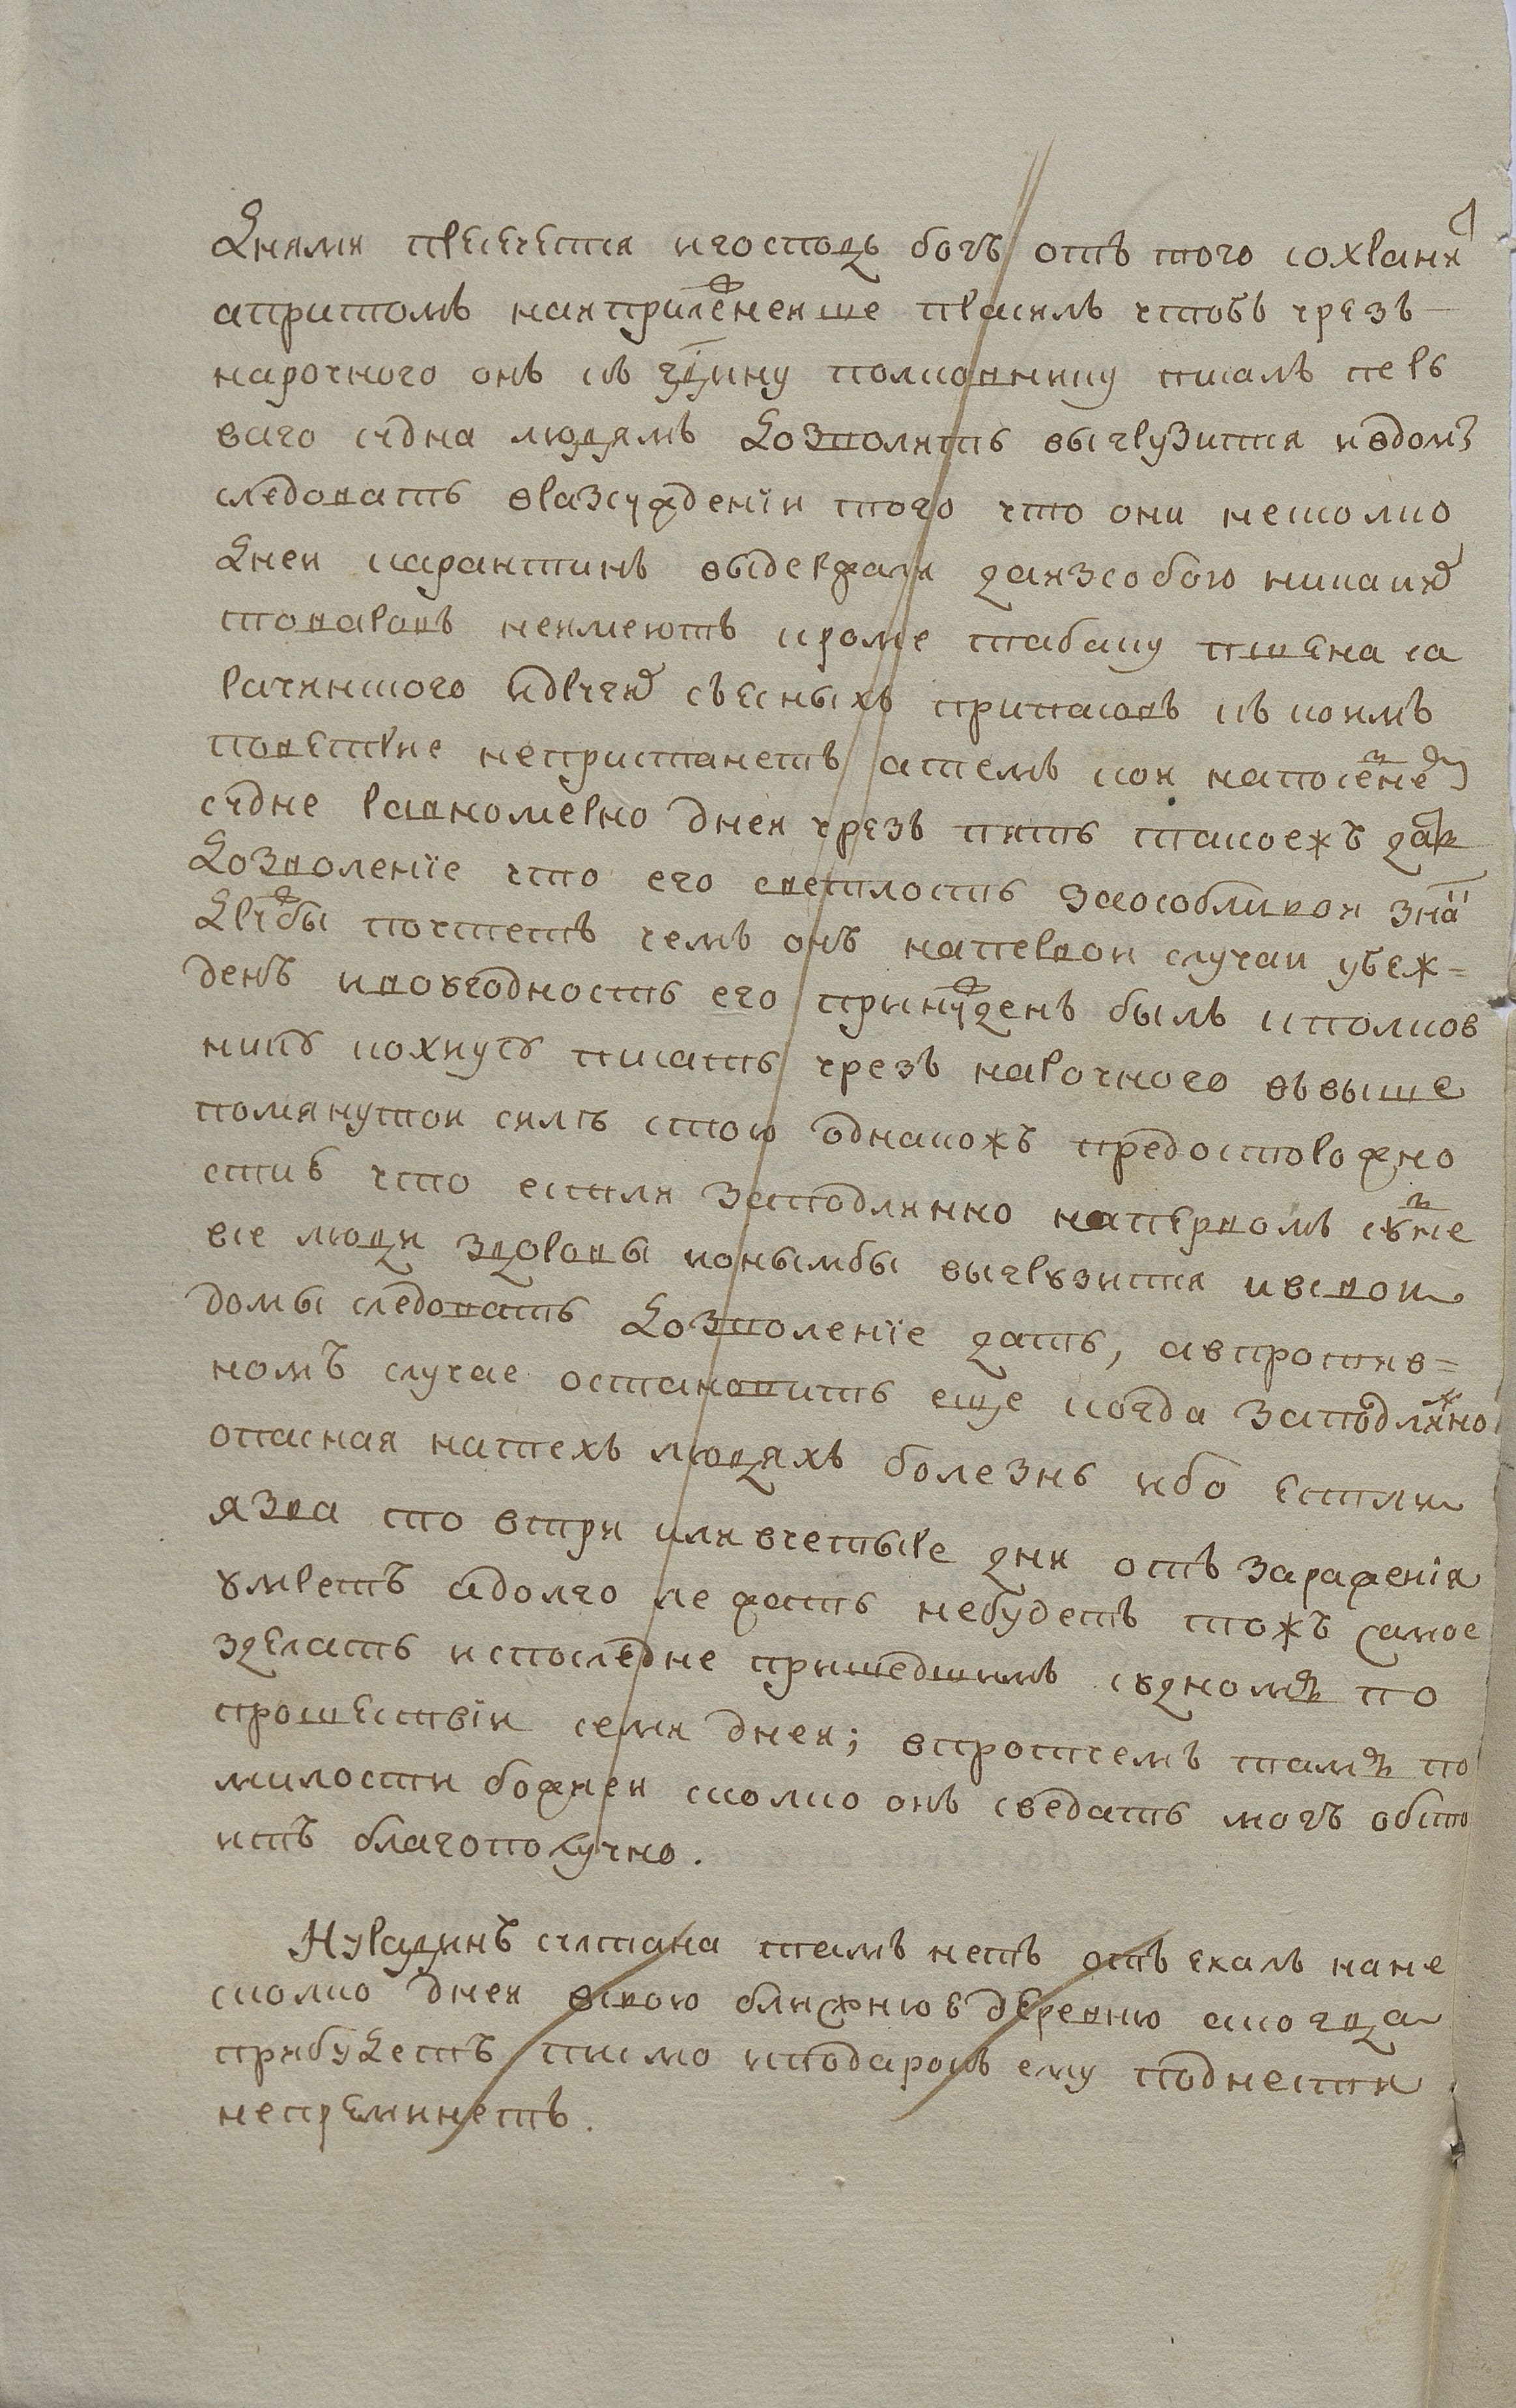 днями пресечетия и господь богъ отъ того сохранял
а притомъ наиприлежнейше просилъ чтобъ чрезъ
нарочного онъ къ гдину полковнику писалъ пер
ваго судна людямъ дозволить выгрузится и вдомъ
следовать вразсуждении того что они несколко
дней карантинъ выдержали да изсобою никаких
товаровъ неимеютъ кроме табаку пшена са
рачинского и другихъ съесныхъ припасовъ къ коимъ
поветрие непристанетъ а темъ кои напоследнем
судне равномерно дней чрезъ пять такоежъ дат
дозволение что его светлость заособливои знак
дружбы почтетъ чемъ онъ напервои случаи убеж=
денъ и воугодность его принужденъ былъ к полков
нику кохиусу писать чрезъ нарочного ввыше
помянутои силе стою однакожъ предосторожно
стию что естли заподлинно напервомъ судне
все люди здоровы ионымбы выгрузится и всвои
домы следовать дозволение дать, а впротив=
номъ случае остановить еще когда заподлинно
опасная натехъ людяхъ болезнь ибо естли
язва то втри или вчетыре дни отъ заражения
умретъ а долго лежать небудетъ тожъ самое
зделать и споследне пришедшимъ судномъ по
прошествии семи дней; впротчемъ тамъ по
милости божией сколко онъ сведать могъ обсто
итъ благополучно.
Нурадинъ султана тамъ нетъ отъехалъ нане
сколко дней всвою ближнюю деревню а когда
прибудетъ писмо и подарокъ ему поднести
непреминетъ.